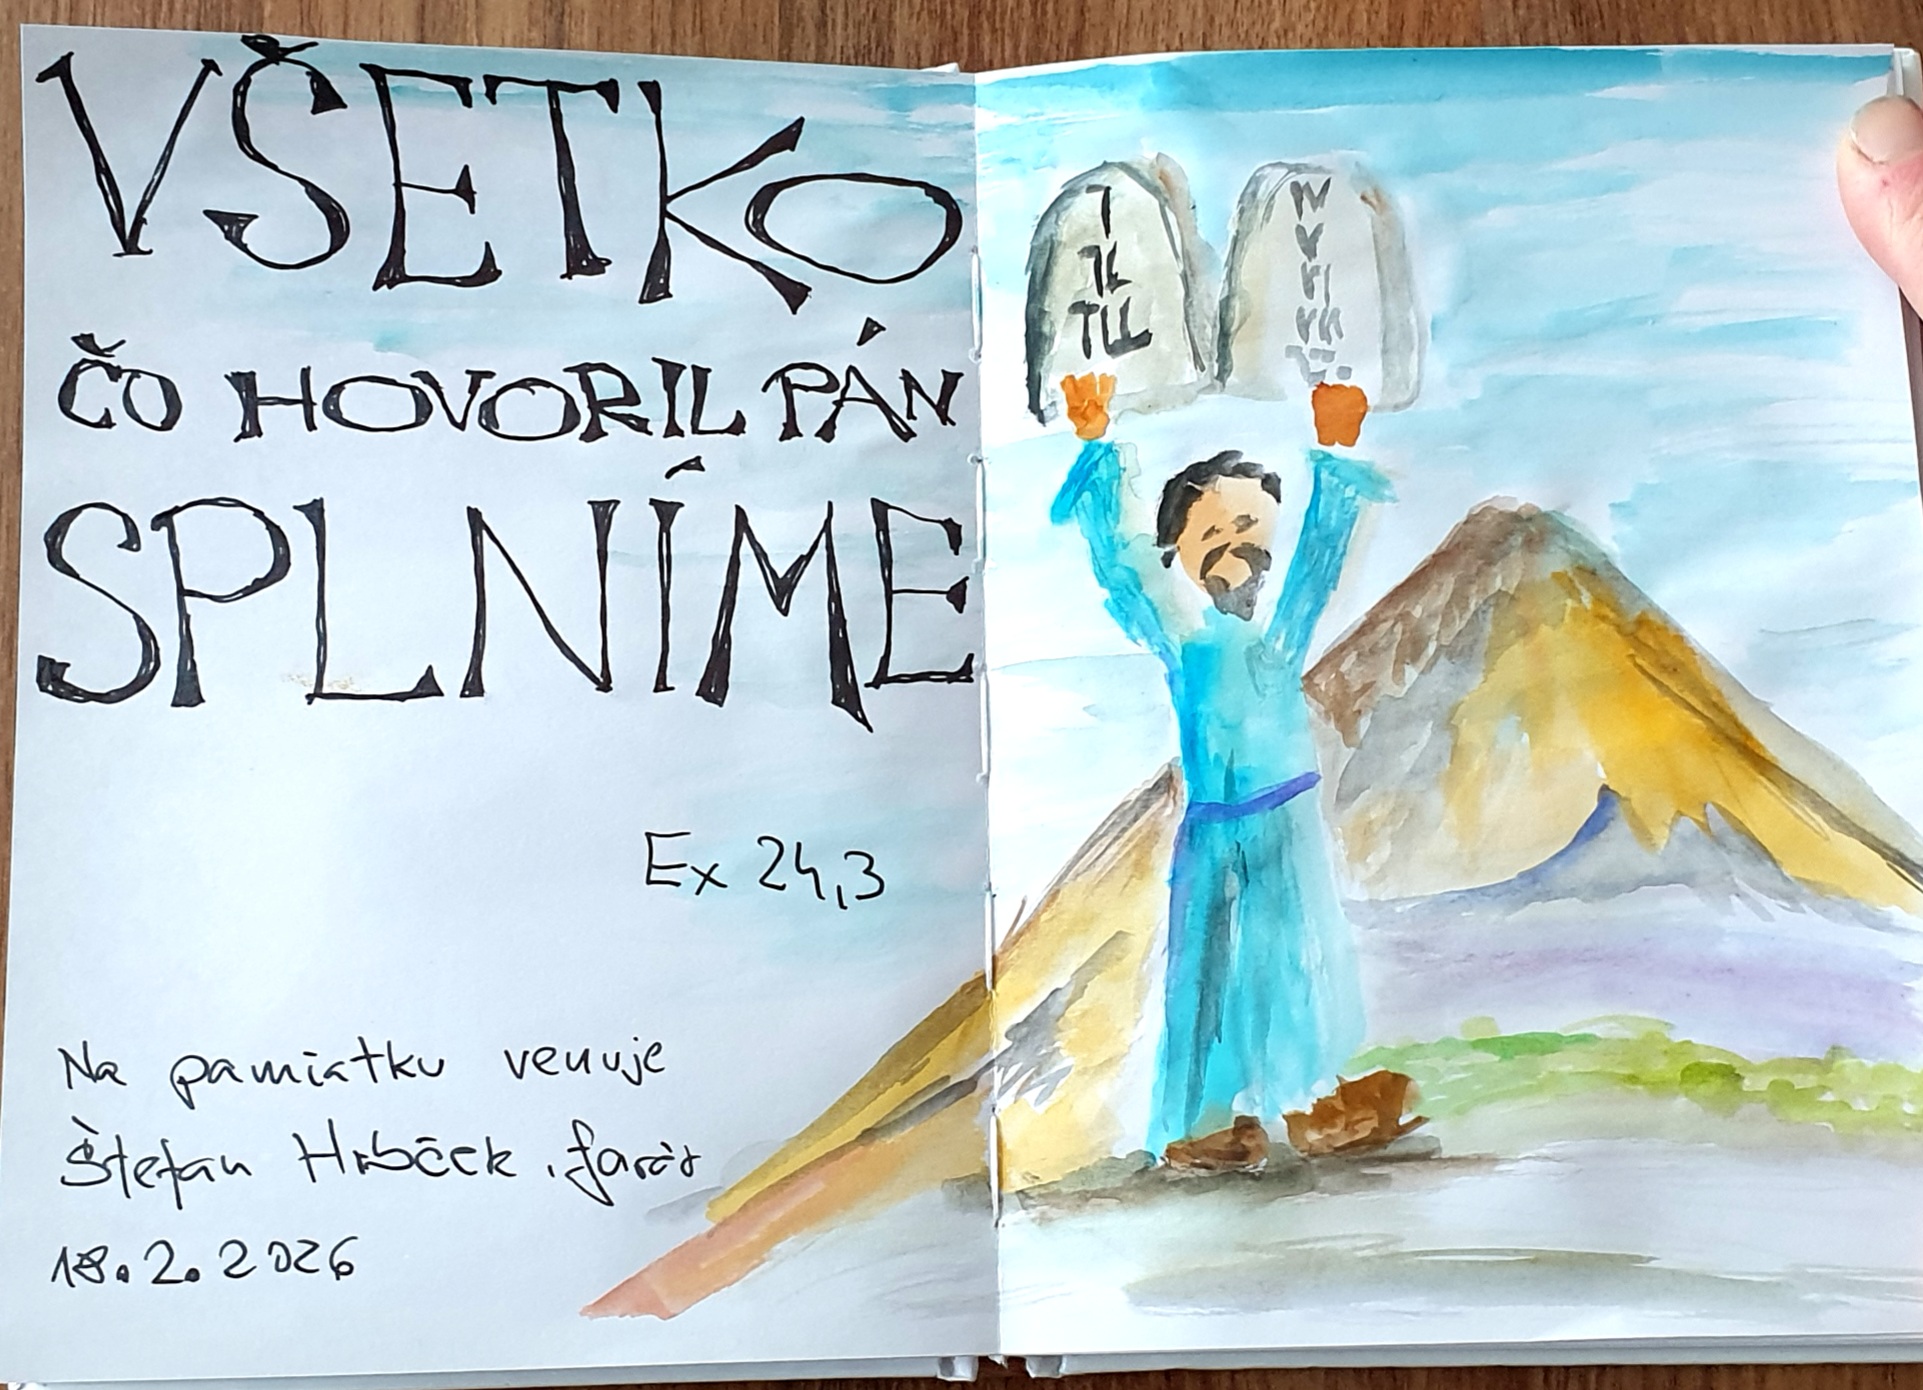 VŠETKO
ČO HOVORIL PÁN
SPLNÍME
Ex 24,3
Na pamiatku venuje
Štefan Hrbček, farár
18.2.2026
I
IV
V